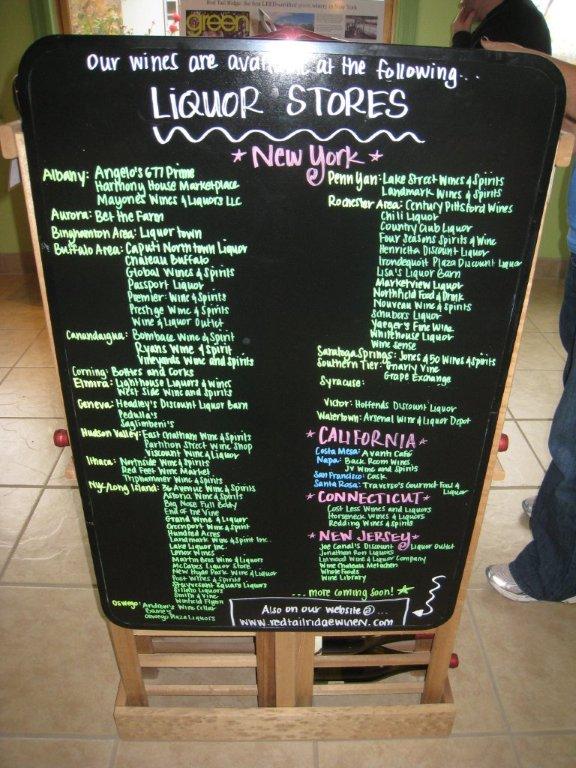 green
Red Tail Ridge: the first LEED-certified green winery in New York
Our wines are available at the following...
Liquor Stores
New York
Albany: Angelo's 677 Prime
Harmony House Marketplace
Mayones Wines & Liquors LLC
Aurora: Bet the Farm
Binghamton Area: Liquor town
Buffalo Area: Caputi North town Liquor
Chateau Buffalo
Global Wines & Spirits
Passport Liquor
Premier Wine & Spirits
Prestige Wine & Spirits
Wine & Liquor Outlet
Canandaigua: Bombace Wine & Spirit
Ryans Wine & Spirit
Vineyards Wine and Spirits
Corning: Bottles and Corks
Elmira: Lighthouse Liquors & Wines
West Side Wine and Spirits
Geneva: Headley's Discount Liquor Barn
Pedulla's
Saglimbeni's
Hudson Valley: East Chatham Wine & Spirits
Partition Street Wine Shop
Viscount Wine & Liquor
Ithaca: Northside Wine & Spirits
Red Feet Wine Market
Triphammer Wine & Spirits
NYC/Long Island: 86 Avenue Wine & Spirits
Astoria Wine & Spirits
Big Nose Full Body
End of the Vine
Grand Wine & Liquor
Greenport Wine & Spirit
Hundred Acres
Landmark Wine & Spirit Inc.
Lake Liquor Inc.
Lenox Wines
Martin Bros Wine & Liquors
McCabes Liquor Store
New Hyde Park Wine & Liquor
Post Wines & Spirits
Stuyvesant Square Liquors
Smith & Vine
Winfield Flynn
Oswego: Andrew's Wine Cellar
Oswego Plaza Liquors
Penn Yan: Lake Street Wines & Spirits
Landmark Wines & Spirit
Rochester Area: Century Pittsford Wines
Chili Liquor
Country Club Liquor
Four Seasons Spirits & Wine
Henrietta Discount Liquor
Irondequoit Plaza Discount Liquor
Lisa's Liquor Barn
Marketview Liquor
Northfield Food & Drink
Nouveau Wine & Spirits
Schubers Liquor
Yaeger's Fine Wine
Whitehouse Liquor
Wine Sense
Saratoga Springs: Jones & 50 Wines & Spirits
Southern Tier: Gnarly Vine
Grape Exchange
Syracuse:
Victor: Hoffends Discount Liquor
Watertown: Arsenal Wine & Liquor Depot
California
Costa Mesa: Avanti Café
Napa: Back Room Wines
JV Wine and Spirits
San Francisco: Cask
Santa Rosa: Traverso's Gourmet Food & Liquor
Connecticut
Cost Less Wines and Liquors
Horseneck Wines & Liquors
Redding Wine & Spirits
New Jersey
Joe Canal's Discount Liquor Outlet
Jonathan Ron Liquors
Linwood Wine & Liquor Company
Wine Chateau Metuchen
Whole Foods
Wine Library
...more coming soon!
Also on our website @...
www.redtailridgewinery.com